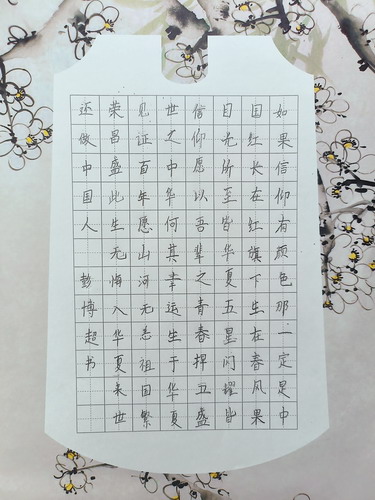 如果信仰有颜色那一定是中
国红长在红旗下生在春风里
目光所至皆华夏五星闪耀皆
信仰愿以吾辈之青春捍卫盛
世之中华何其幸运生于华夏
见证百年愿山河无恙祖国繁
荣昌盛此生无悔入华夏来世
还做中国人 彭博超书